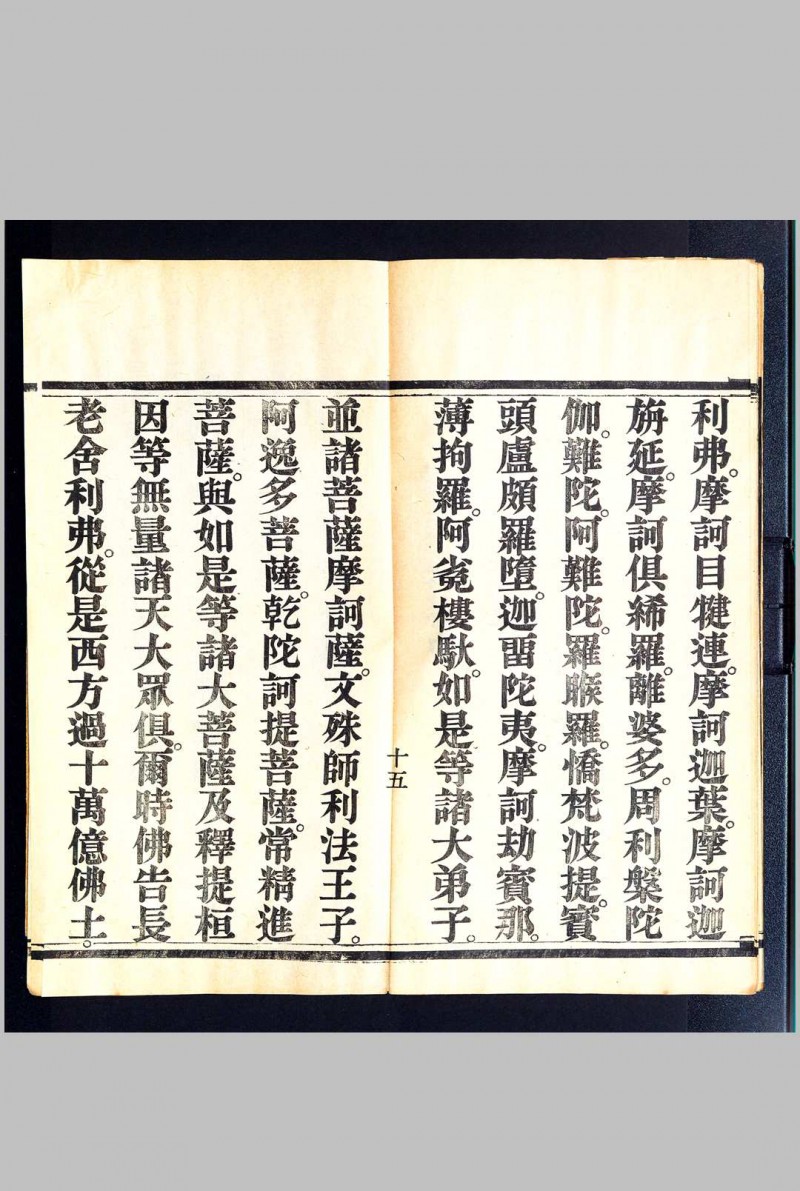 利弗。摩訶目犍連。摩訶迦葉。摩訶迦
旃延。摩訶俱絺羅。離婆多。周利槃陀
伽。難陀。阿難陀。羅睺羅。憍梵波提。賓
頭盧頗羅墮。迦畱陀夷。摩訶劫賓那。
薄拘羅。阿㝹樓馱。如是等諸大弟子。
十五
並諸菩薩摩訶薩。文殊師利法王子。
阿逸多菩薩。乾陀訶提菩薩。常精進
菩薩。與如是等諸大菩薩及釋提桓
因等無量諸天大眾俱。爾時佛告長
老舍利弗。從是西方過十萬億佛土。